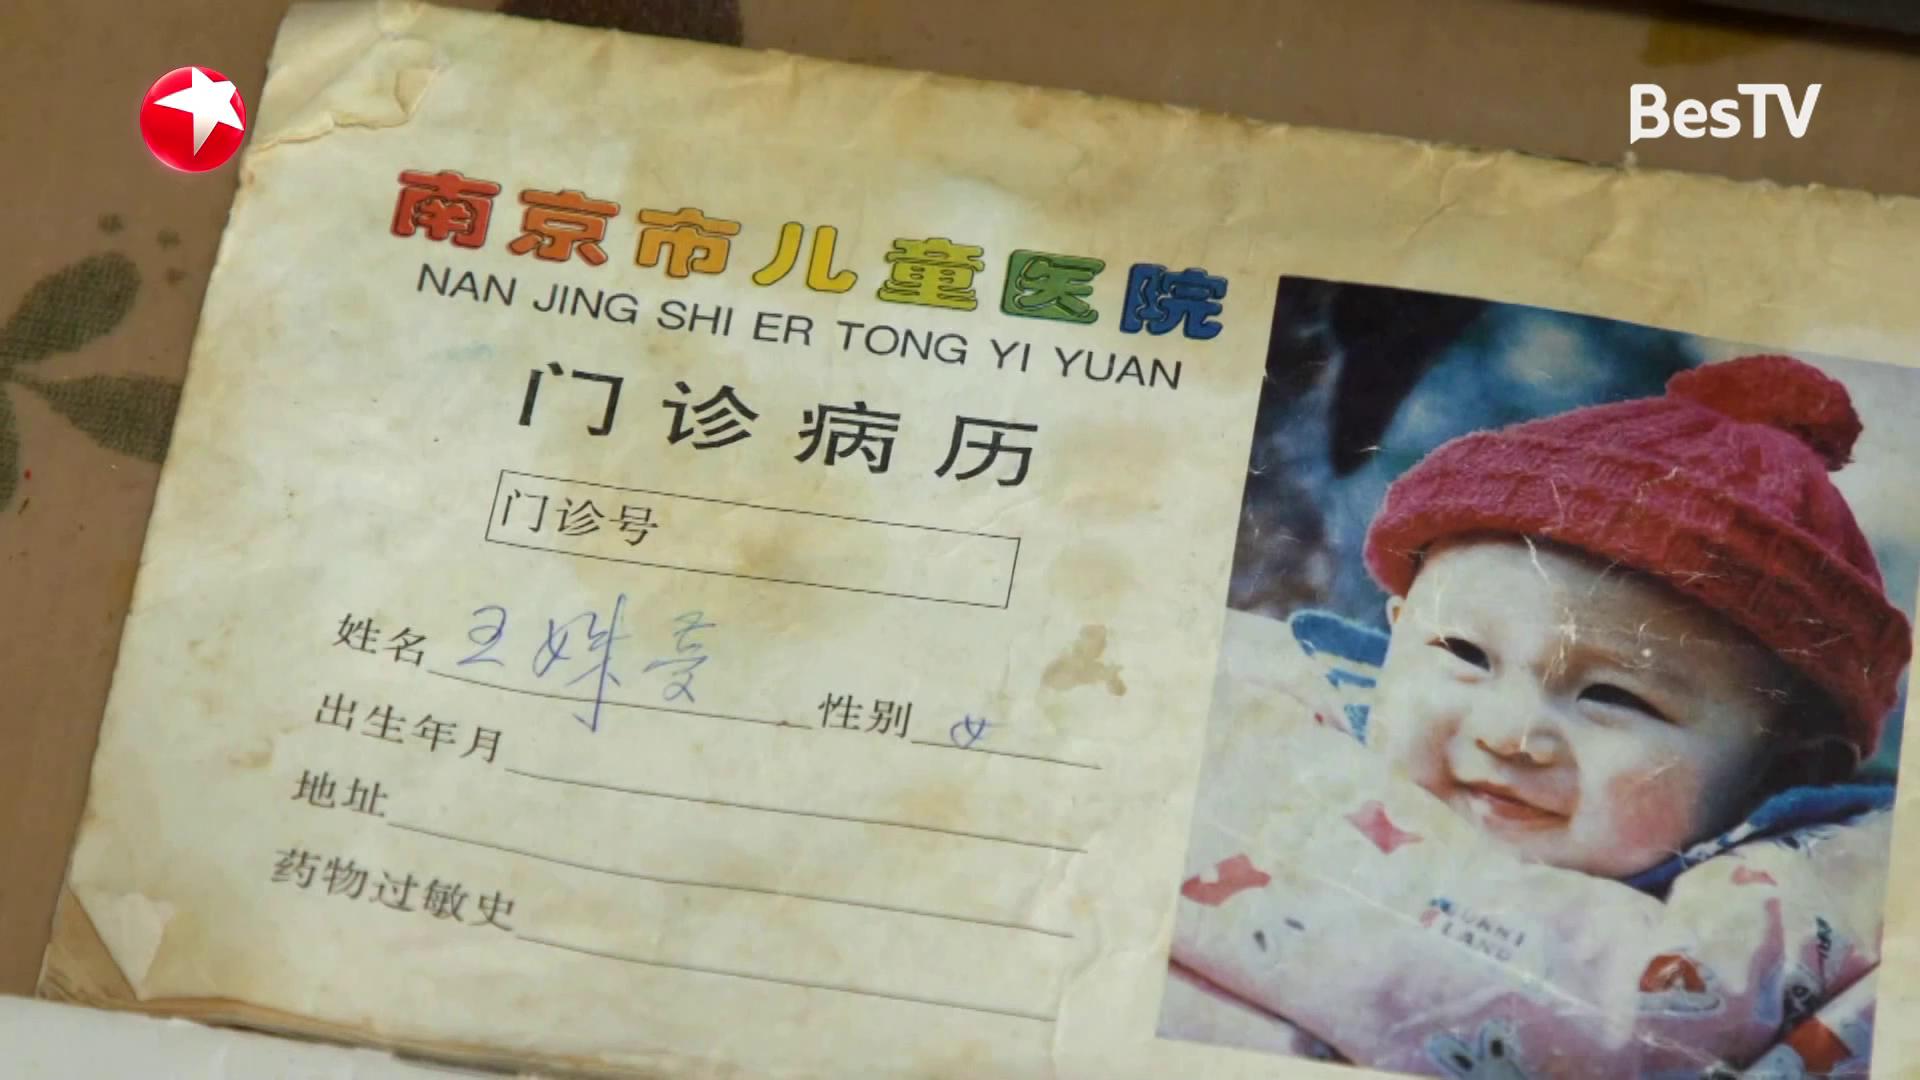 BesTV
南京市儿童医院
NAN JING SHI ER TONG YI YUAN
门诊病历
门诊号
姓名 王姝 性别 女
出生年月
地址
药物过敏史
LAND